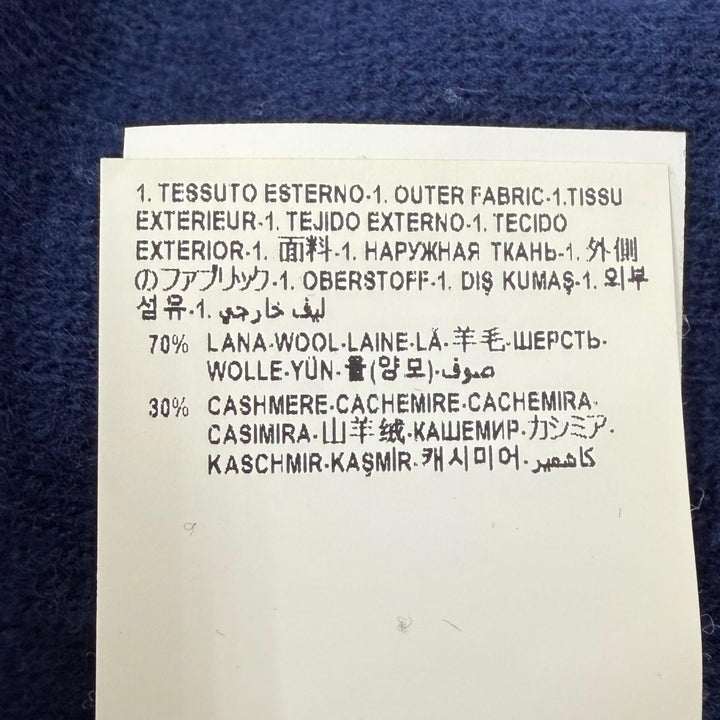 1. TESSUTO ESTERNO·1. OUTER FABRIC·1.TISSU
EXTERIEUR·1. TEJIDO EXTERNO·1. TECIDO
EXTERIOR·1. 面料·1. НАРУЖНАЯ ТКАНЬ·1. 外側
のファブリック·1. OBERSTOFF·1. DIŞ KUMAŞ·1. 외부
섬유·1. ليف خارجي
70% LANA·WOOL·LAINE·LÃ·羊毛·ШЕРСТЬ·
WOLLE·YÜN·울(양모)·صوف
30% CASHMERE·CACHEMIRE·CACHEMIRA·
CASIMIRA·山羊绒·КАШЕМИР·カシミア·
KASCHMIR·KAŞMİR·캐시미어·كاشمير